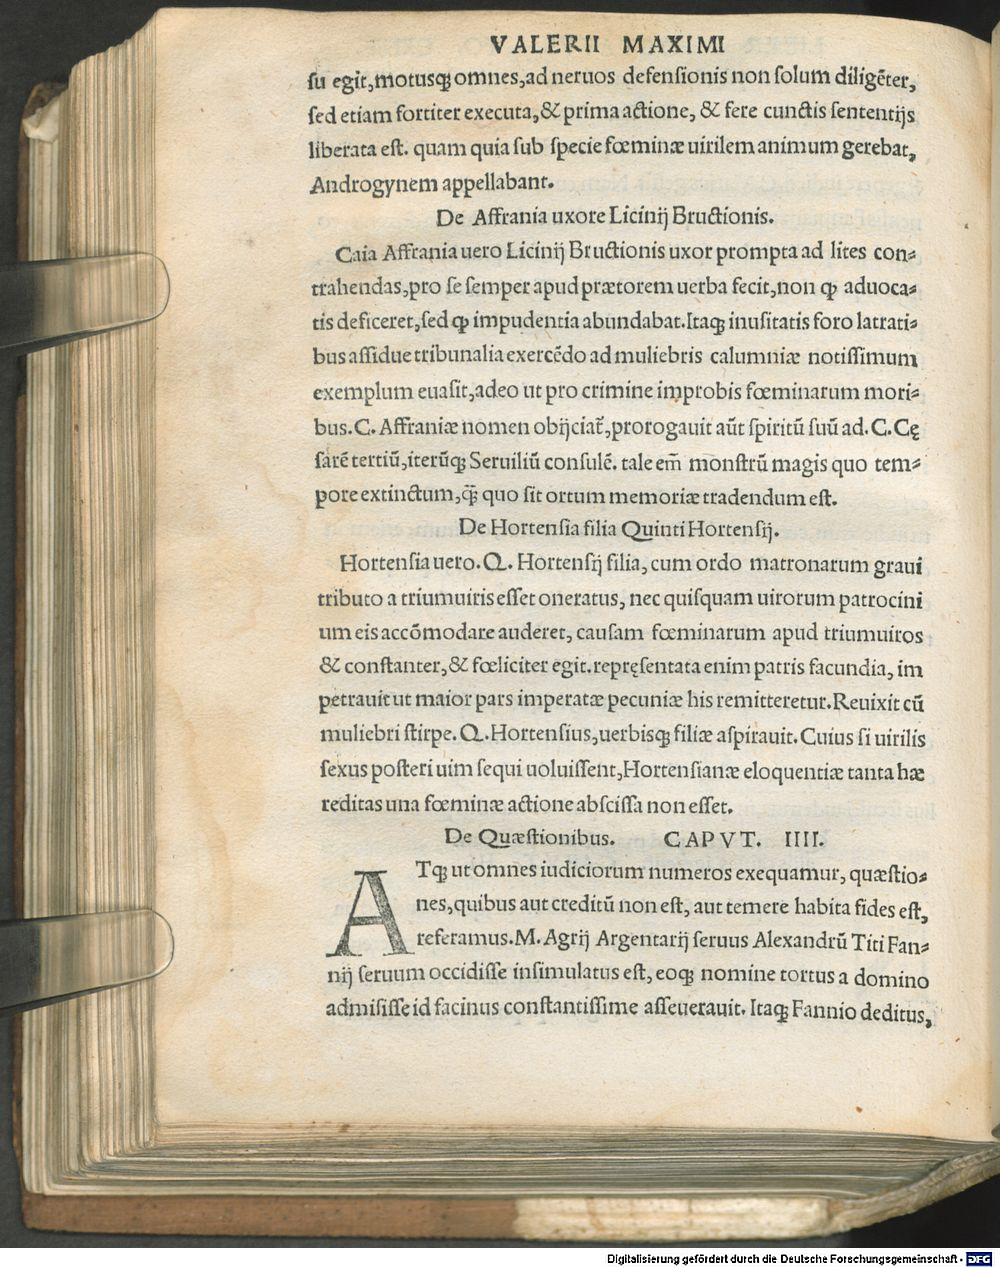 VALERII MAXIMI
su egit, motusq; omnes, ad neruos defensionis non solum diligẽter,
sed etiam fortiter executa, & prima actione, & fere cunctis sententijs
liberata est. quam quia sub specie fœminæ uirilem animum gerebat,
Androgynem appellabant.
De Affrania uxore Licinij Bructionis.
Caia Affrania uero Licinij Bructionis uxor prompta ad lites con-
trahendas, pro se semper apud prætorem uerba fecit, non ꝙ aduoca-
tis deficeret, sed ꝙ impudentia abundabat. Itaq; inusitatis foro latrati-
bus assidue tribunalia exercẽdo ad muliebris calumniæ notissimum
exemplum euasit, adeo ut pro crimine improbis fœminarum mori-
bus. C. Affraniæ nomen obijciat᷑, prorogauit aũt spiritũ suũ ad. C. Cę
sarẽ tertiũ, iterũq; Seruiliũ consulẽ. tale em̃ monstrũ magis quo tem-
pore extinctum, q̃ quo sit ortum memoriæ tradendum est.
De Hortensia filia Quinti Hortensij.
Hortensia uero. Q. Hortensij filia, cum ordo matronarum graui
tributo a triumuiris esset oneratus, nec quisquam uirorum patrocini
um eis accõmodare auderet, causam fœminarum apud triumuiros
& constanter, & fœliciter egit. repręsentata enim patris facundia, im
petrauit ut maior pars imperatæ pecuniæ his remitteretur. Reuixit cũ
muliebri stirpe. Q. Hortensius, uerbisq; filiæ aspirauit. Cuius si uirilis
sexus posteri uim sequi uoluissent, Hortensianæ eloquentiæ tanta hæ
reditas una fœminæ actione abscissa non esset.
De Quæstionibus. CAPVT. IIII.
ATq; ut omnes iudiciorum numeros exequamur, quæstio-
nes, quibus aut creditũ non est, aut temere habita fides est,
referamus. M. Agrij Argentarij seruus Alexandrũ Titi Fan-
nij seruum occidisse insimulatus est, eoq; nomine tortus a domino
admisisse id facinus constantissime asseuerauit. Itaq; Fannio deditus,
Digitalisierung gefördert durch die Deutsche Forschungsgemeinschaft - DFG